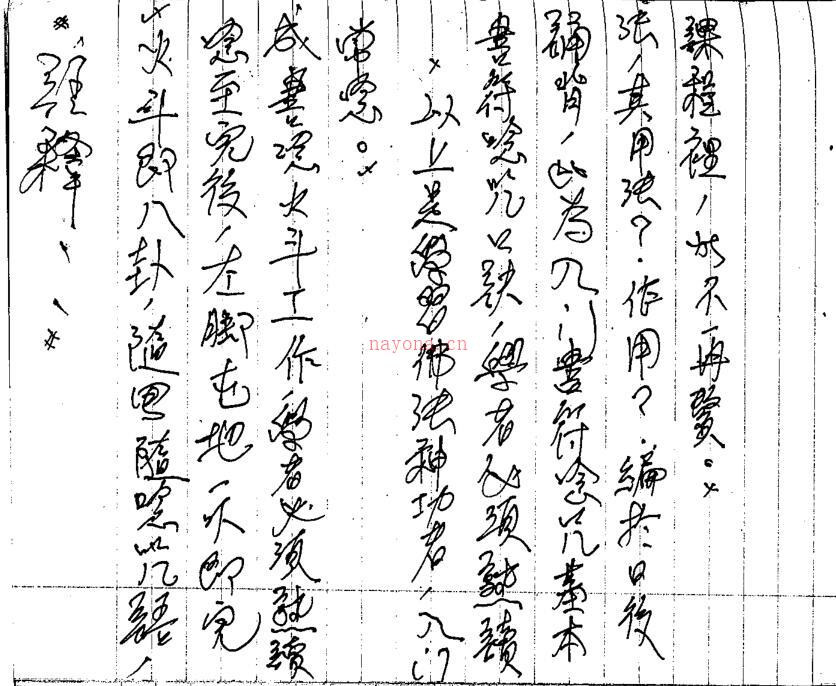 課程裡，故不再贅。×
法，其用法？.作用？.編於日後
誦背，此為入门書符唸咒基本
書符唸咒口訣，學者必須熟讀
×以上是學習佛法神功者，入门
常唸。×
成書唸火斗工作，學者必須熟讀
唸至完後，左腳屯地一次即完
火斗即八卦，隨畫隨唸咒語，
※註釋：※
nayong.cn